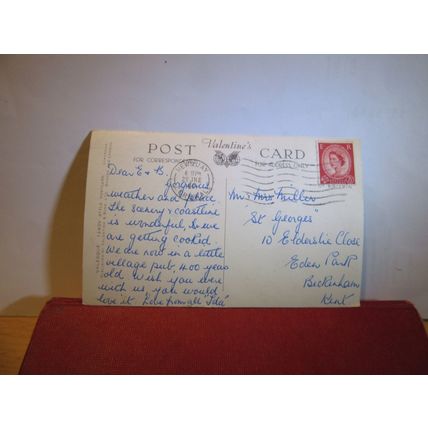 POST Valentine's CARD
FOR CORRESPONDENCE FOR ADDRESS ONLY
NEWQUAY
Dear E & B.
Gorgeous
weather and place.
The scenery & coastline
is wonderful, & we
are getting cooked.
We are now in a little
village pub, 400 years
old. Wish you were
with us, you would
love it. Love from all "Ida"
Mr & Mrs Miller
"St Georges"
10 Elderslie Close
Eden Park
Beckenham
Kent